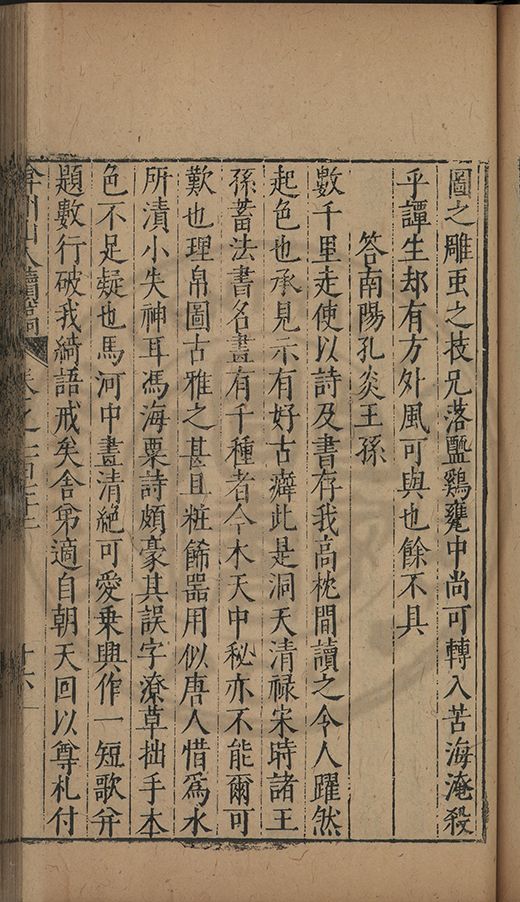 圖之雕䖝之技兄落䀋鷄甕中尚可轉入苦海淹殺
乎譚生却有方外風可與也餘不具
答南陽孔炎王孫
數千里走使以詩及書存我高枕間讀之令人躍然
起色也承見示有好古癖此是洞天清禄宋時諸王
孫蓄法書名畫有千種者今木天中秘亦不能爾可
歎也理帛圖古雅之甚且粧餙器用似唐人惜爲水
所漬小失神耳馮海粟詩頗豪其誤字潦草拙手本
色不足疑也馬河中畫清絕可愛乗興作一短歌弁
題數行破我綺語戒矣舍弟適自朝天回以尊札付
弇州山人續稿 卷之一百